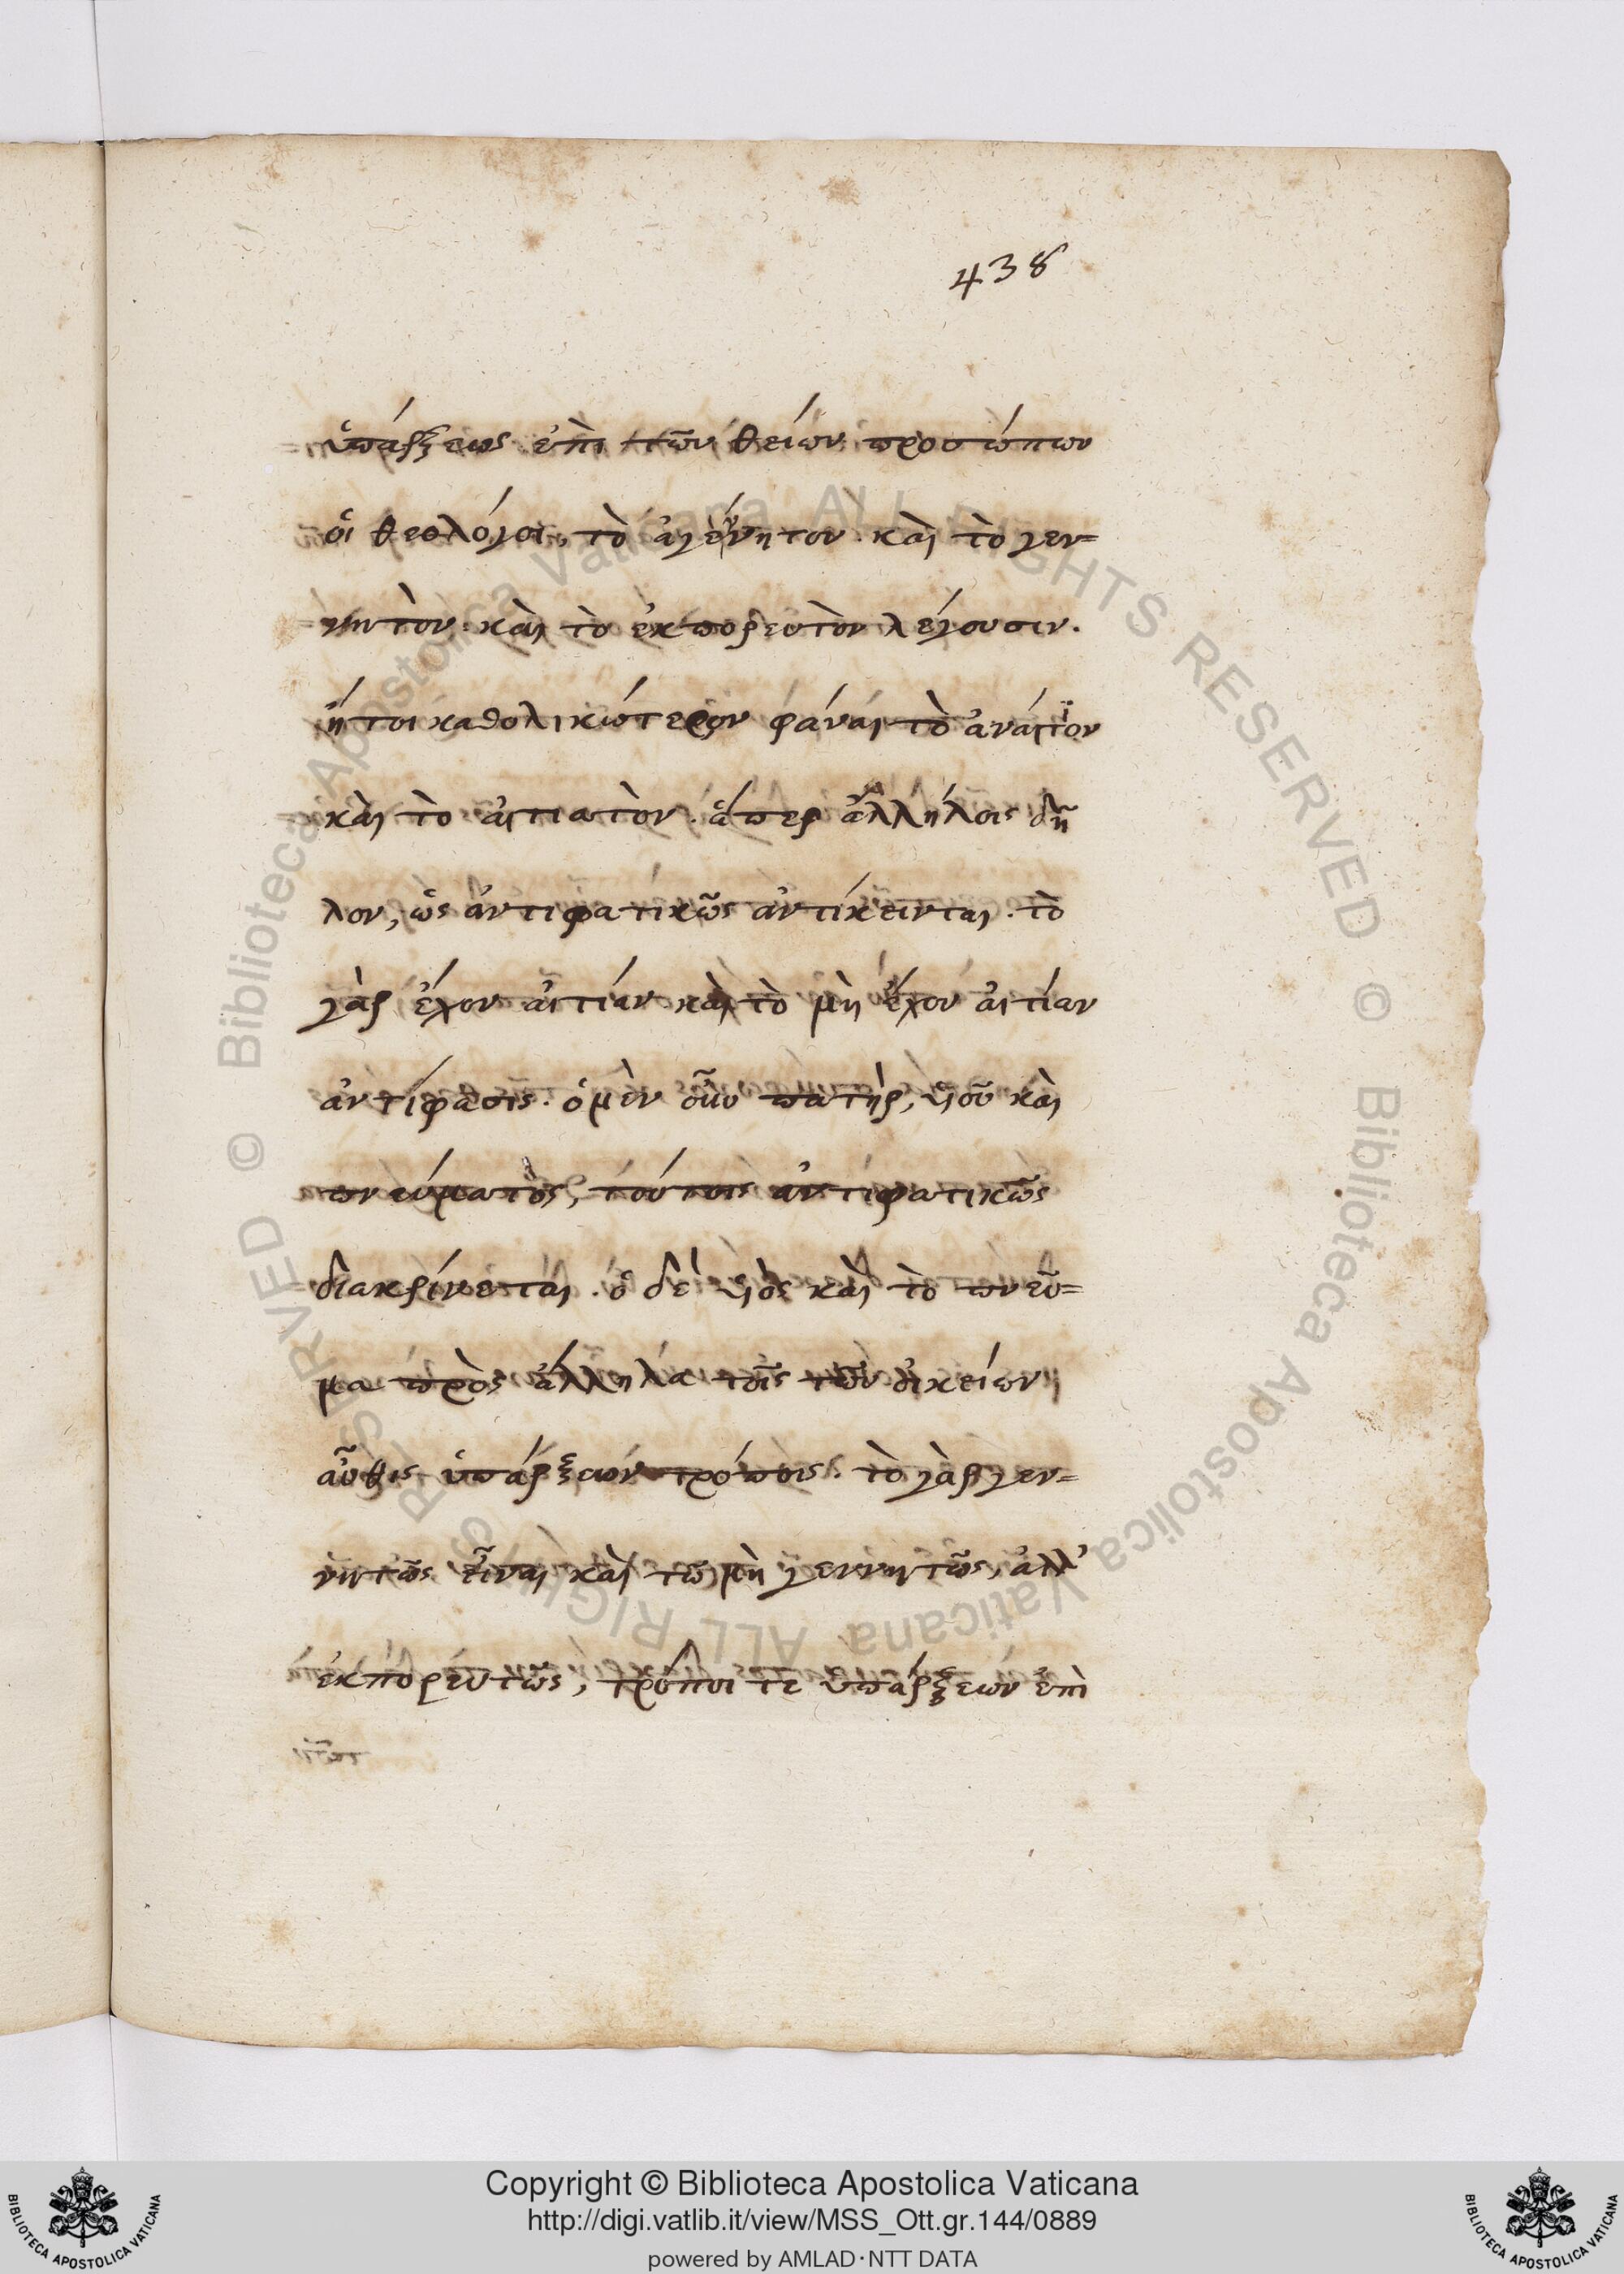 438
ὑπάρξεως ἐπὶ τῶν θείων προσώπων
οἱ θεολόγοι, τὸ ἀγέννητον. καὶ τὸ γεν=
νητὸν. καὶ τὸ ἐκπορευτὸν λέγουσιν.
ἤτοι καθολικώτερον φάναι τὸ ἀναίτϊον
καὶ τὸ αἰτιατὸν. ἅπερ ἀλλήλοις δῆ
λον, ὡς ἀντιφατικῶς ἀντίκεινται. τὸ
γὰρ ἔχον αἰτίαν καὶ τὸ μὴ ἔχον αἰτίαν
ἀντίφασις. ὁ μὲν οὖν πατὴρ, υἱοῦ καὶ
πνεύματος, τούτοις ἀντιφατικῶς
διακρίνεται. ὁ δὲ υἱὸς καὶ τὸ πνεῦ=
μα πρὸς ἄλληλα τοῖς τῶν οἰκείων
αὖθις ὑπάρξεων τρόποις. τὸ γὰρ γεν=
νητῶς εἶναι καὶ τῶ μὴ γεννητῶς, ἀλλ'
ἐκπορευτῶς, τρόποι τε ὑπάρξεων ἐπὶ
Copyright © Biblioteca Apostolica Vaticana
http://digi.vatlib.it/view/MSS_Ott.gr.144/0889
powered by AMLAD·NTT DATA
BIBLIOTECA APOSTOLICA VATICANA
BIBLIOTECA APOSTOLICA VATICANA
© Biblioteca Apostolica Vaticana ALL RIGHTS RESERVED © Biblioteca Apostolica Vaticana ALL RIGHTS RESERVED